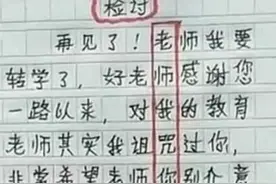 检讨
再见了！老师我要
转学了，好老师感谢您
一路以来，对我的教育
老师其实我诅咒过你，
非常希望老师你别介意